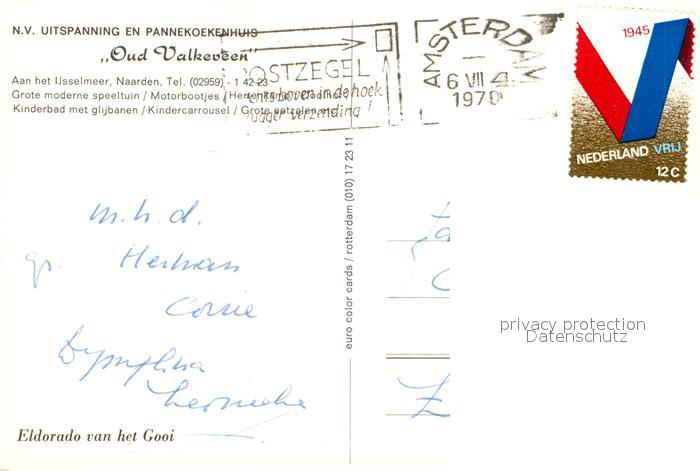 N.V. UITSPANNING EN PANNEKOEKENHUIS
„Oud Valkeveen"
Aan het IJsselmeer, Naarden, Tel. (02959) - 1 42 23
Grote moderne speeltuin / Motorbootjes /
Kinderbad met glijbanen / Kindercarrousel / Grote
OSTZEGEL
boven in de hoek
verzending !
AMSTERDAM
6 VII
1970
1945
NEDERLAND VRIJ
12 C
m.h.d.
gr. Herman
Corrie
Dymphna
Eldorado van het Gooi
euro color cards / rotterdam (010) 17 23 11
privacy protection
Datenschutz